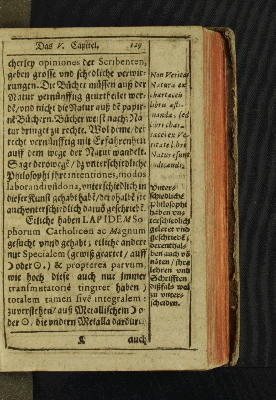 Das V. Capitel. 129
cherley opiniones der Scribenten,
geben grosse und schedliche verwir-
rungen. Die Bücher müssen auß der
Natur vernünfftig geurtheilet wer-
dē/ und nicht die Natur auß dē papir-
nē Büchern. Bücher weist nach: Na
tur bringet zu rechte. Wol deme/ der
recht vernünfftig mit Erfahrenheit
auff dem wege der Natur wandelt.
Sage derowegē/ dz unterschiedliche
Philosophi ihre intentiones, modos
laborandi und ona, unterschiedlich in
dieser Kunst gehabt habē/ derohalbē sie
auch unterschiedlich davō geschriebē.
Etliche haben LAPIDEM So
phorum Catholicon ac Magnum
gesucht und gehabt; etliche andere
nur Specialem (gewiß geartet / auff
☽ oder ☉.) & propterea parvum
wie hoch diese auch nur immer
transmutatone tingiret haben /
totalem tamen sive integralem:
zuverstehen/ auß Metallischem ☽ o-
der ☉, die andern Metalla dardur:
K auch
Non Veritas
Natura ex
chartaceis
libris æsti-
manda, sed
libri charta-
cei ex Ve-
ritate libri
Naturæ sunt
iudicandi.
Unter-
schiedliche
Philosophi
haben un-
terschiedlich
geleret und
geschriebē,
derenthal-
ben auch vō
nöten / ihre
lehren und
Schrifften
dißfals wol
zu unter-
scheiden.